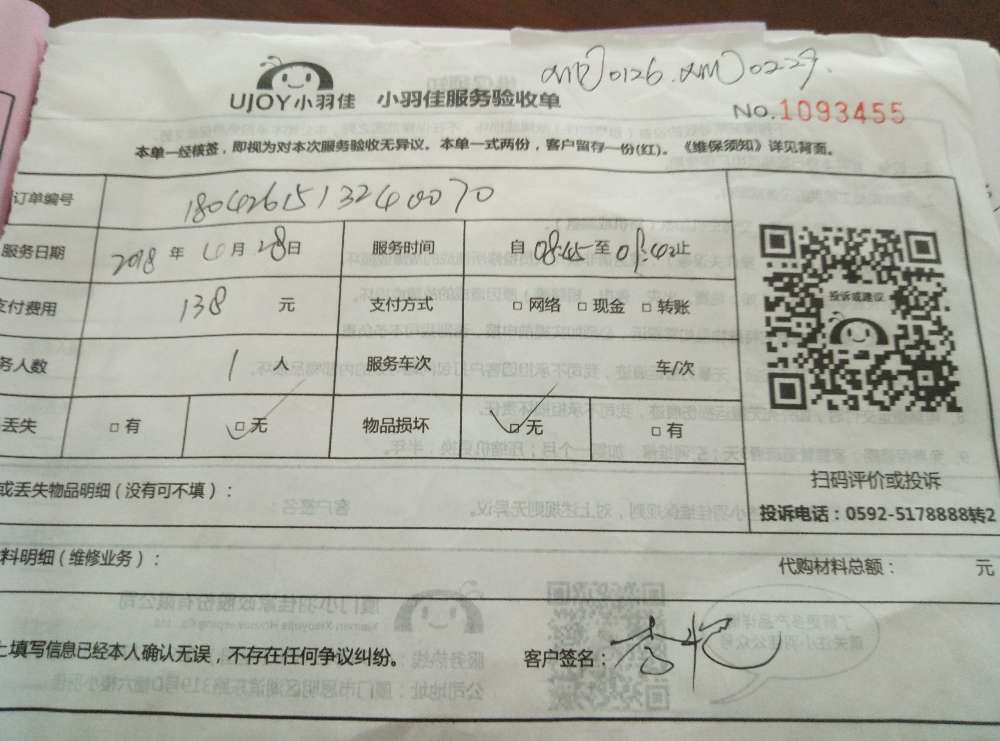 XMQ0126.XMJ0227.
UJOY小羽佳 小羽佳服务验收单
No.1093455
本单一经核签，即视为对本次服务验收无异议。本单一式两份，客户留存一份(红)。《维保须知》详见背面。
订单编号 18042615132400070
服务日期 2018 年 月 28日 服务时间 自 08:45至 09:40止
支付费用 138 元 支付方式 □ 网络 □ 现金 □ 转账
务人数 1 人 服务车次 车/次
丢失 □ 有 □ 无 物品损坏 □ 无 □ 有
投诉或建议
扫码评价或投诉
投诉电话：0592-5178888转2
或丢失物品明细(没有可不填)：
料明细(维修业务)： 代购材料总额： 元
上填写信息已经本人确认无误，不存在任何争议纠纷。 客户签名：